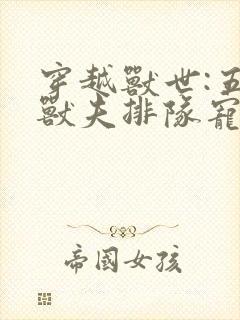 穿越獸世:五
獸夫排隊寵
帝國女孩